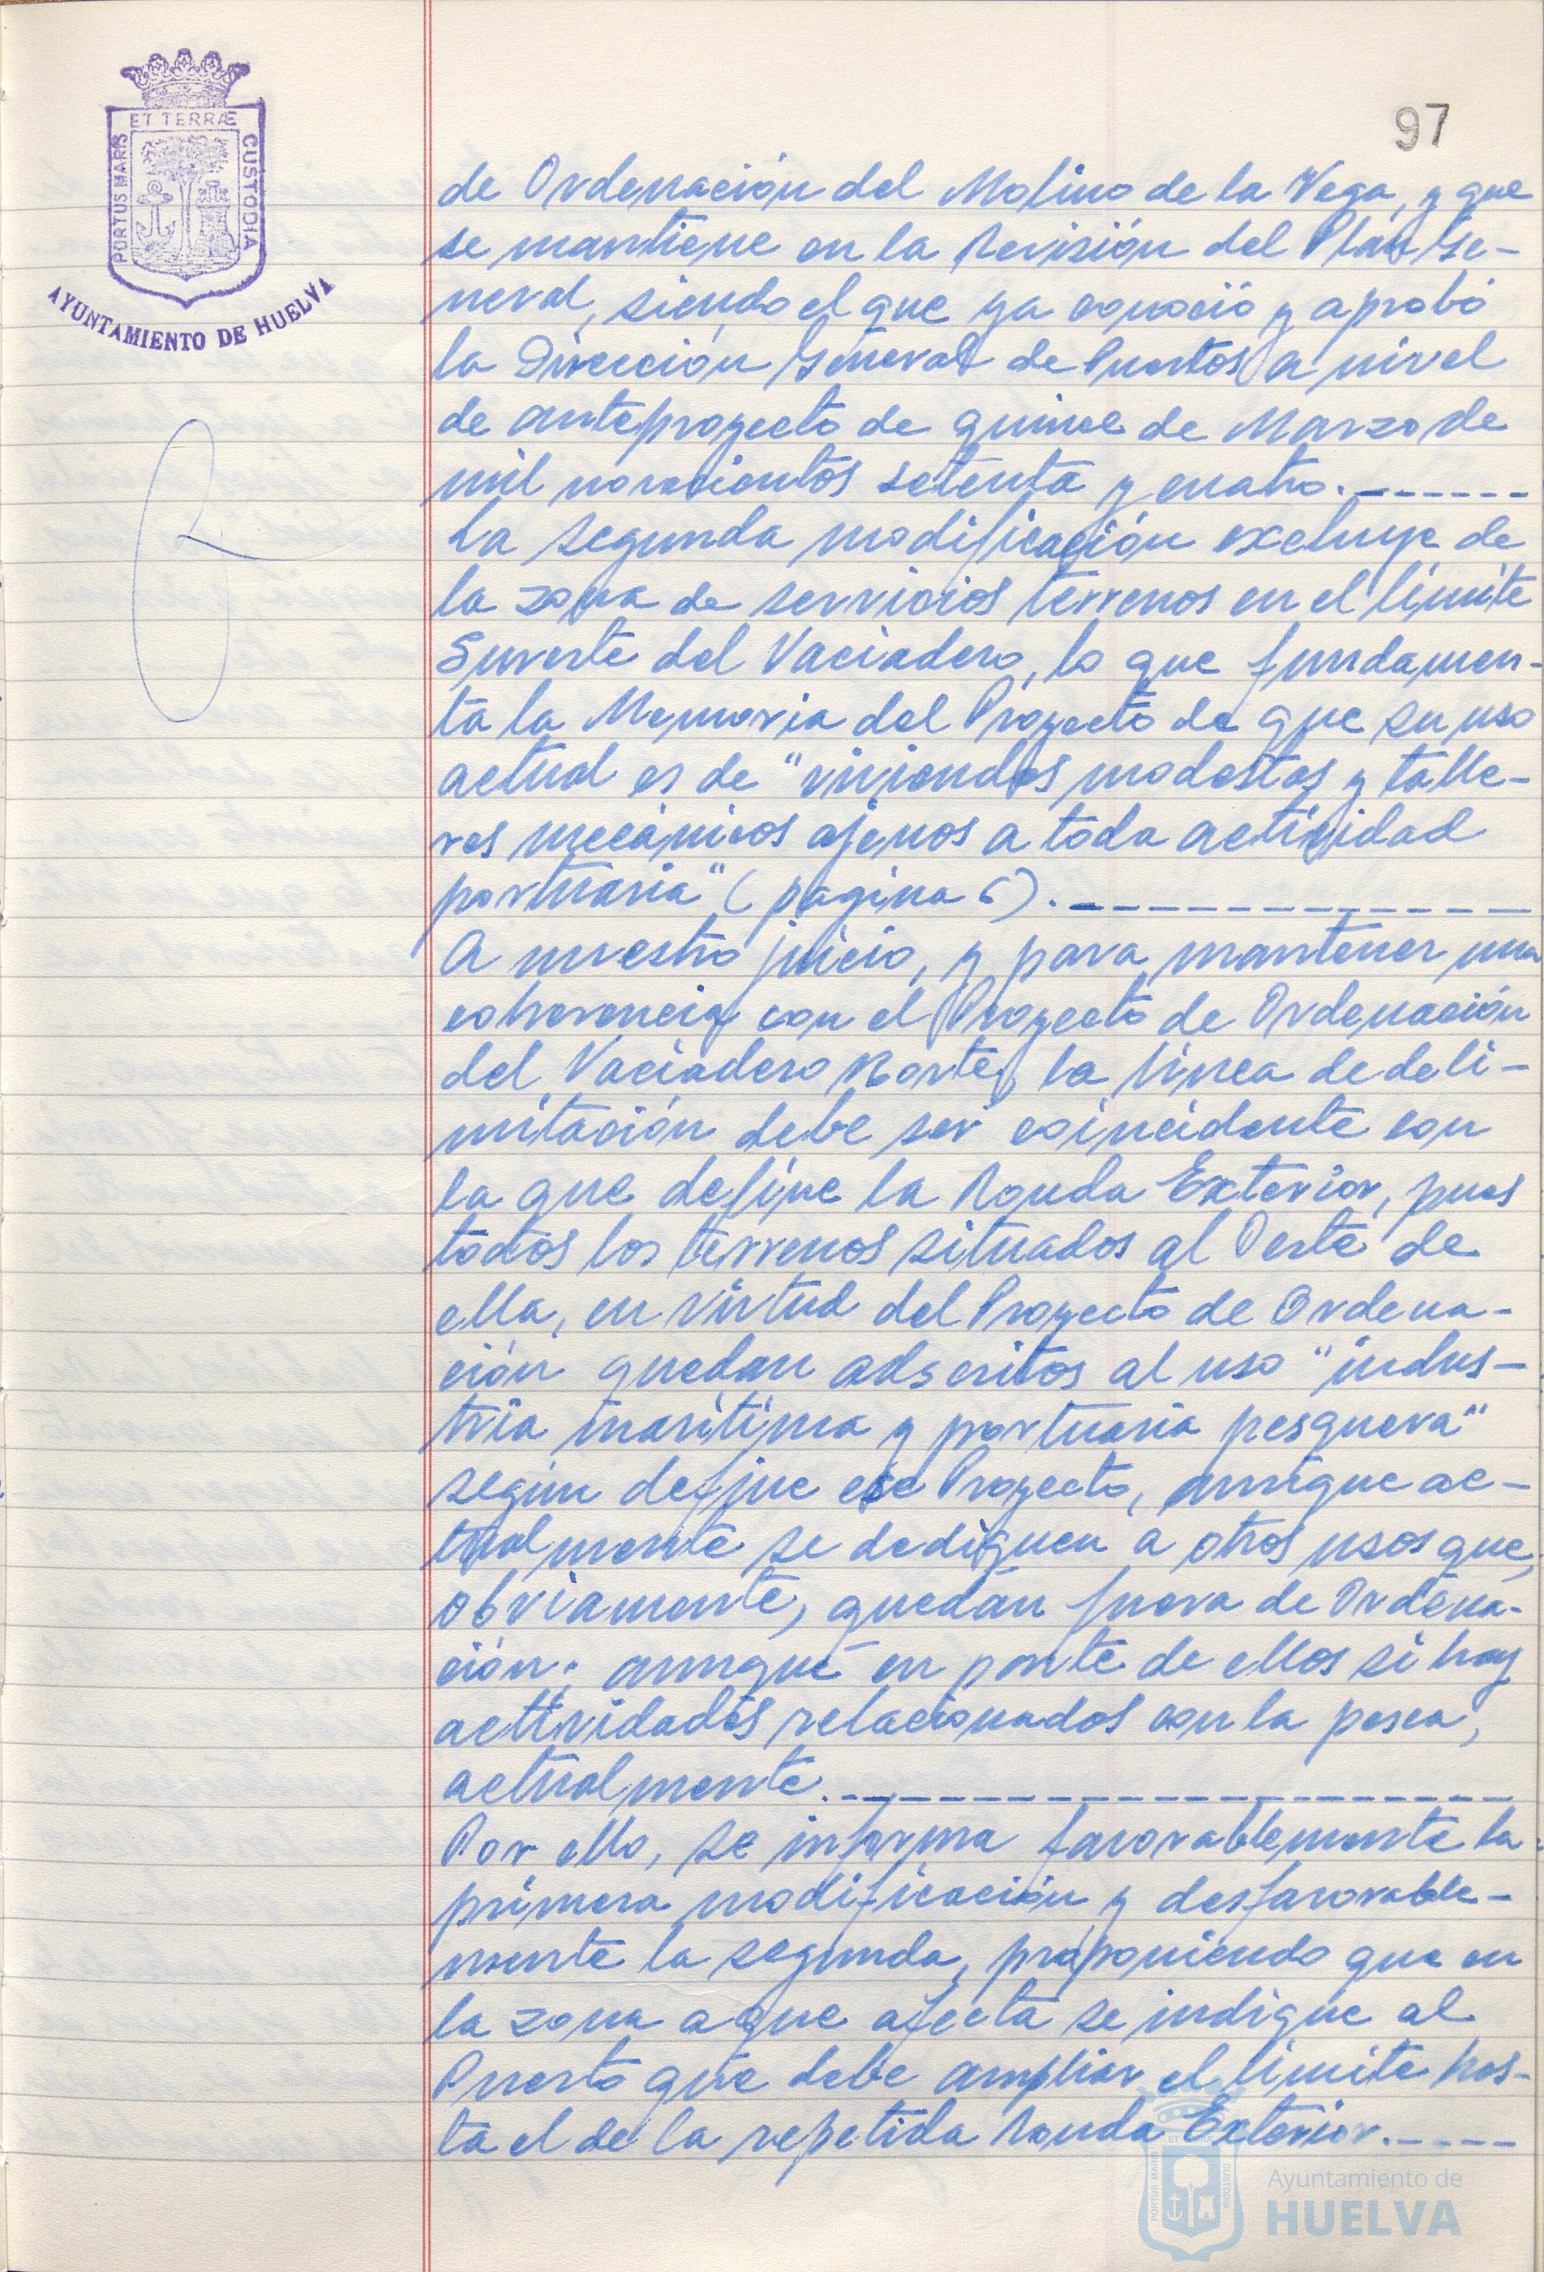 97
ET TERRÆ
PORTUS MARIS
CUSTODIA
AYUNTAMIENTO DE HUELVA
de Ordenación del Molino de la Vega, y que
se mantiene en la Revisión del Plan Ge-
neral, siendo el que ya conoció y aprobó
la Dirección General de Puertos a nivel
de anteproyecto de quince de Marzo de
mil novecientos setenta y cuatro.-------
La segunda modificación excluye de
la zona de servicios terrenos en el límite
Sureste del Vaciadero, lo que fundamen-
ta la Memoria del Proyecto de que su uso
actual es de "viviendas modestas y talle-
res mecánicos ajenos a toda actividad
portuaria" (página 6).-------------
A nuestro juicio, y para mantener una
coherencia con el Proyecto de Ordenación
del Vaciadero Norte, la línea de deli-
mitación debe ser coincidente con
la que define la Ronda Exterior, pues
todos los terrenos situados al Oeste de
ella, en virtud del Proyecto de Ordena-
ción quedan adscritos al uso "indus-
tria marítima y portuaria pesquera"
según define ese Proyecto, aunque ac-
tualmente se dediquen a otros usos que,
obviamente, quedan fuera de Ordena-
ción; aunque en parte de ellos si hay
actividades relacionados con la pesca,
actualmente.--------------------
Por ello, se informa favorablemente la
primera modificación y desfavorable-
mente la segunda, proponiendo que en
la zona a que afecta se indique al
Puerto que debe ampliar el límite has-
ta el de la repetida Ronda Exterior.-----
PORTUS MARIS
CUSTODIA
Ayuntamiento de
HUELVA